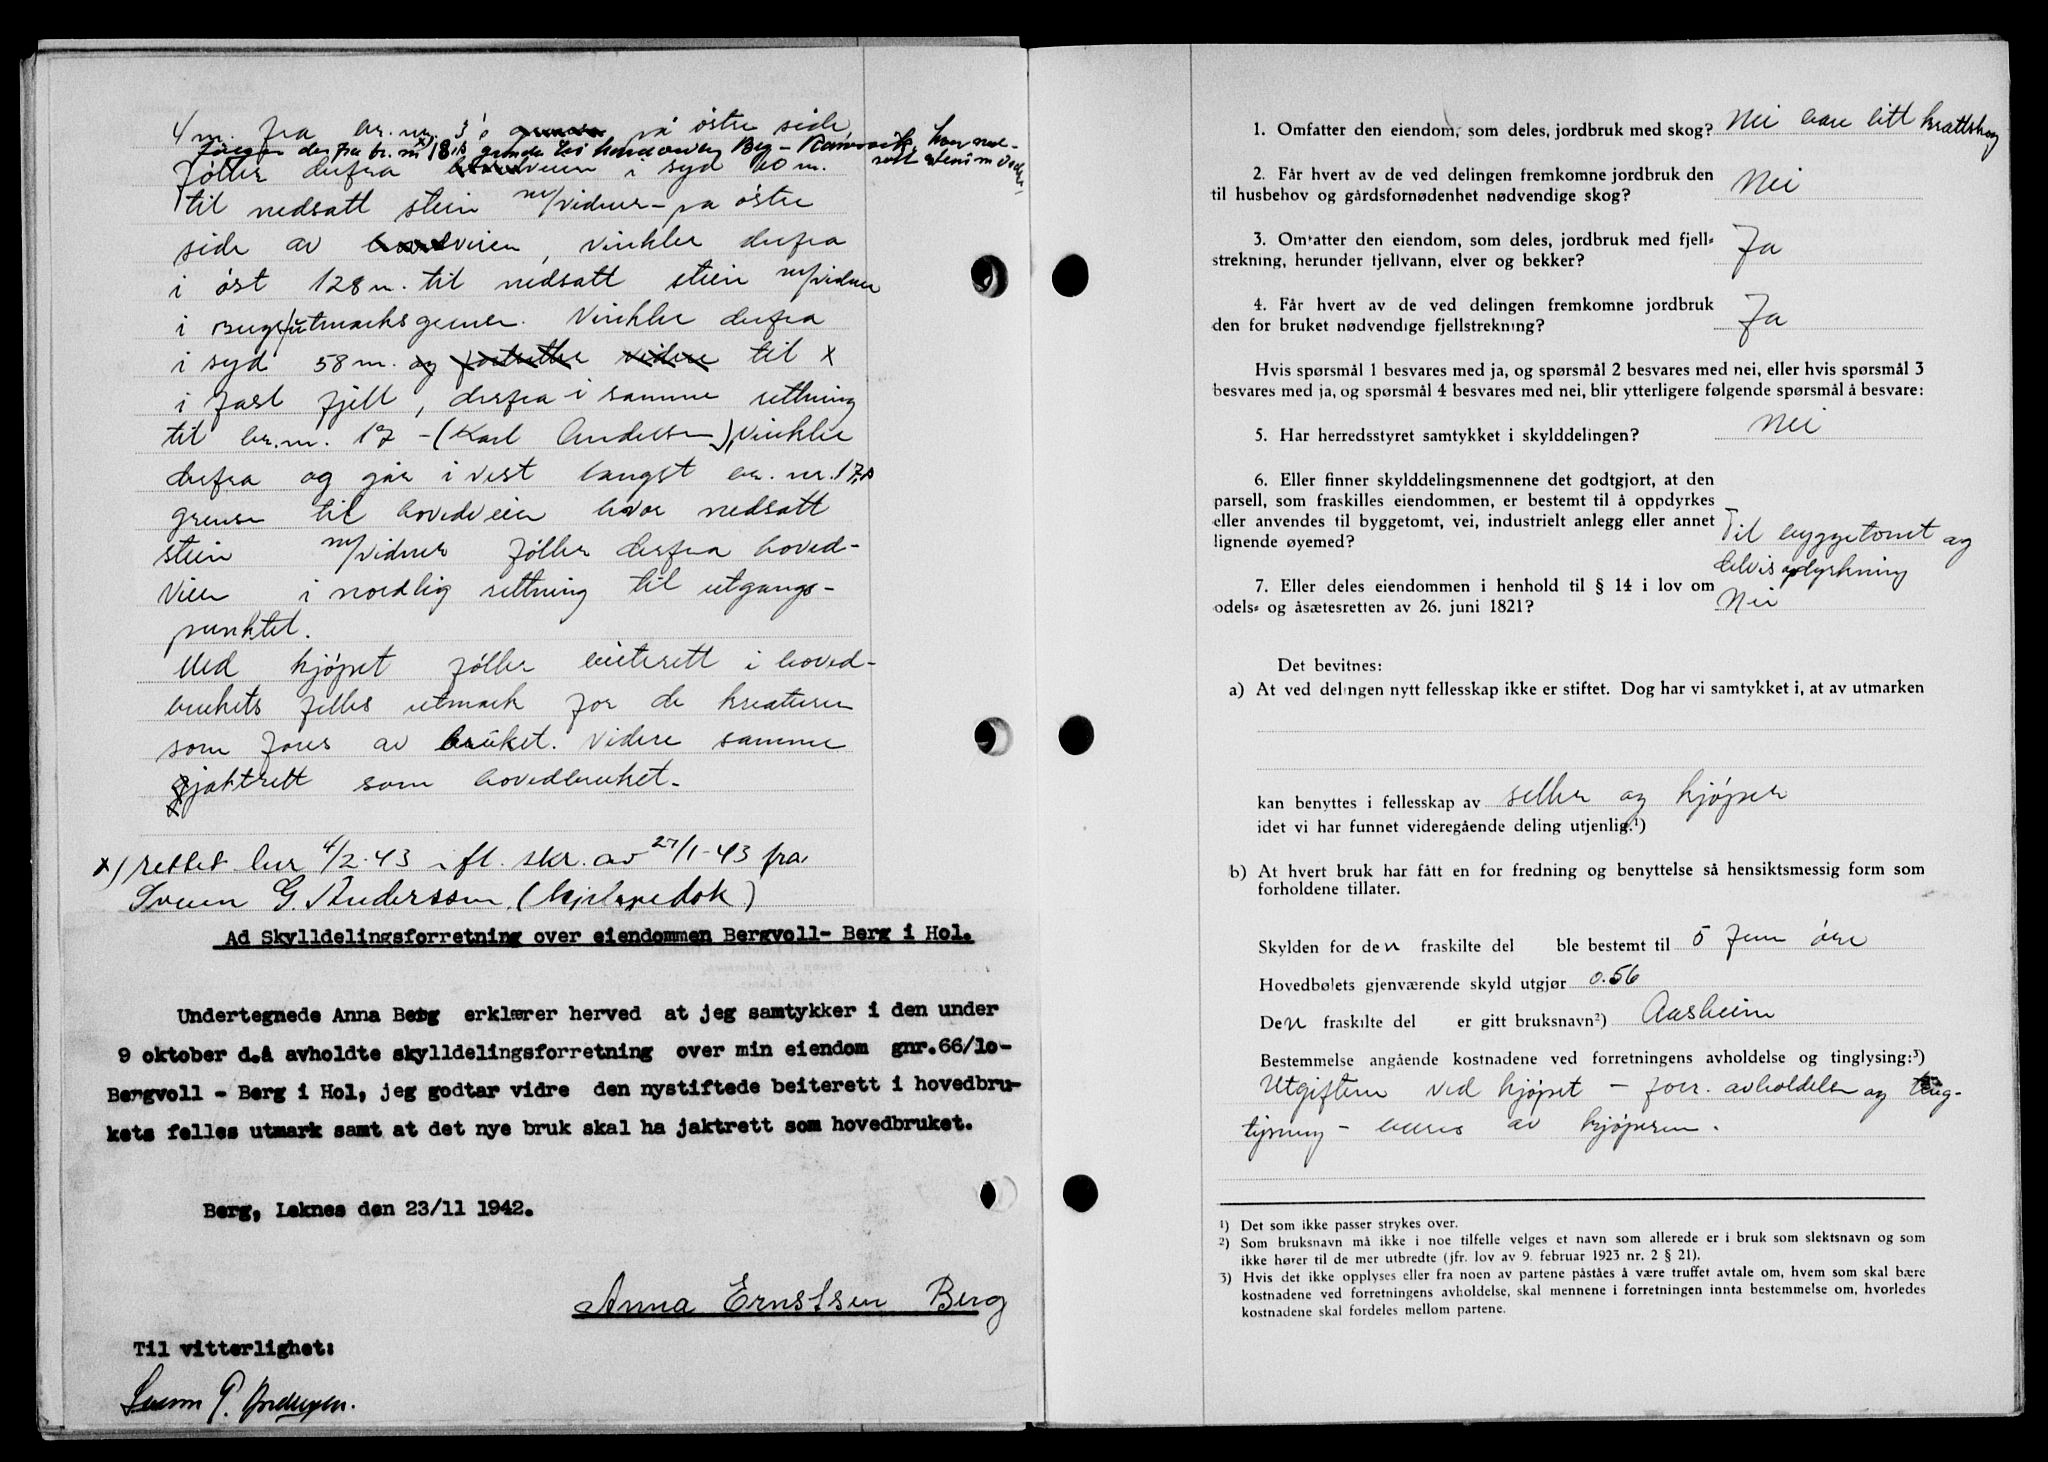 4 m. fra br. nr. 3's på østre side
der fra br. nr. 18s grunde til hovedveg Berg - Ramsvik, hvor ned-
satt sten m vidne.
Følger derfra veien i syd 10 m.
til nedsatt stein m/vidner - på østre
side av hovedveien, vinkler derfra
i øst 128 m. til nedsatt stein m/vidner
i utmarksgense. Vinkler derfra
i syd 58 m. og fortsetter videre til x
i fast fjell, derfra i samme rettning
til br. nr. 17 - (Karl Andersen), Vinkler
derfra og går i vest langst br. nr. 17s
grense til hovedveien hvor nedsatt
stein m/vidner følger derfra hoved-
veien i nordlig rettning til utgangs-
punktet.
Med kjøpet følger beiterett i hoved-
brukets felles utmark for de kreaturer
som fores av bruket. Videre samme
jaktrett som hovedbruket.
x) rettet her 4/2-43 i fl. skr. av 27/1-43 fra
Svenn G. Anderssen,
Ad Skylldelingsforretning over eiendommen Bergvoll- Berg i Hol.
Undertegnede Anna Berg erklærer herved at jeg samtykker i den under
9 oktober d.å avholdte skylldelingsforretning over min eiendom gnr.66/10-
Bergvoll - Berg i Hol, jeg godtar vidre den nystiftede beiterett i hovedbru-
kets felles utmark samt at det nye bruk skal ha jaktrett som hovedbruket.
Berg, Leknes den 23/11 1942.
Anna Ernstsen Berg
Til vitterlighet:
1. Omfatter den eiendom, som deles, jordbruk med skog? Nei bare litt krattskog
2. Får hvert av de ved delingen fremkomne jordbruk den
til husbehov og gårdsfornødenhet nødvendige skog? Nei
3. Omfatter den eiendom, som deles, jordbruk med fjell-
strekning, herunder fjellvann, elver og bekker? Ja
4. Får hvert av de ved delingen fremkomne jordbruk
den for bruket nødvendige fjellstrekning? Ja
Hvis spørsmål 1 besvares med ja, og spørsmål 2 besvares med nei, eller hvis spørsmål 3
besvares med ja, og spørsmål 4 besvares med nei, blir ytterligere følgende spørsmål å besvare:
5. Har herredsstyret samtykket i skylddelingen? Nei
6. Eller finner skylddelingsmennene det godtgjort, at den
parsell, som fraskilles eiendommen, er bestemt til å oppdyrkes
eller anvendes til byggetomt, vei, industrielt anlegg eller annet
lignende øyemed? Til byggetomt og
delvis opdyrkning
7. Eller deles eiendommen i henhold til § 14 i lov om
odels- og åsætesretten av 26. juni 1821? Nei
Det bevitnes:
a) At ved delingen nytt fellesskap ikke er stiftet. Dog har vi samtykket i, at av utmarken
kan benyttes i fellesskap av seller og kjøper
idet vi har funnet videregående deling utjenlig.¹)
b) At hvert bruk har fått en for fredning og benyttelse så hensiktsmessig form som
forholdene tillater.
Skylden for den fraskilte del ble bestemt til 5 fem øre
Hovedbølets gjenværende skyld utgjør 0.56
Den fraskilte del er gitt bruksnavn²) Aasheim
Bestemmelse angående kostnadene ved forretningens avholdelse og tinglysing:³)
Utgiftene ved kjøpet - forr. avholdelse og ting-
lysning - bæres av kjøperen.
¹) Det som ikke passer strykes over.
²) Som bruksnavn må ikke i noe tilfelle velges et navn som allerede er i bruk som slektsnavn og som
ikke hører til de mer utbredte (jfr. lov av 9. februar 1923 nr. 2 § 21).
³) Hvis det ikke opplyses eller fra noen av partene påståes å være truffet avtale om, hvem som skal bære
kostnadene ved forretningens avholdelse, skal mennene i forretningen innta bestemmelse om, hvorledes
kostnadene skal fordeles mellom partene.